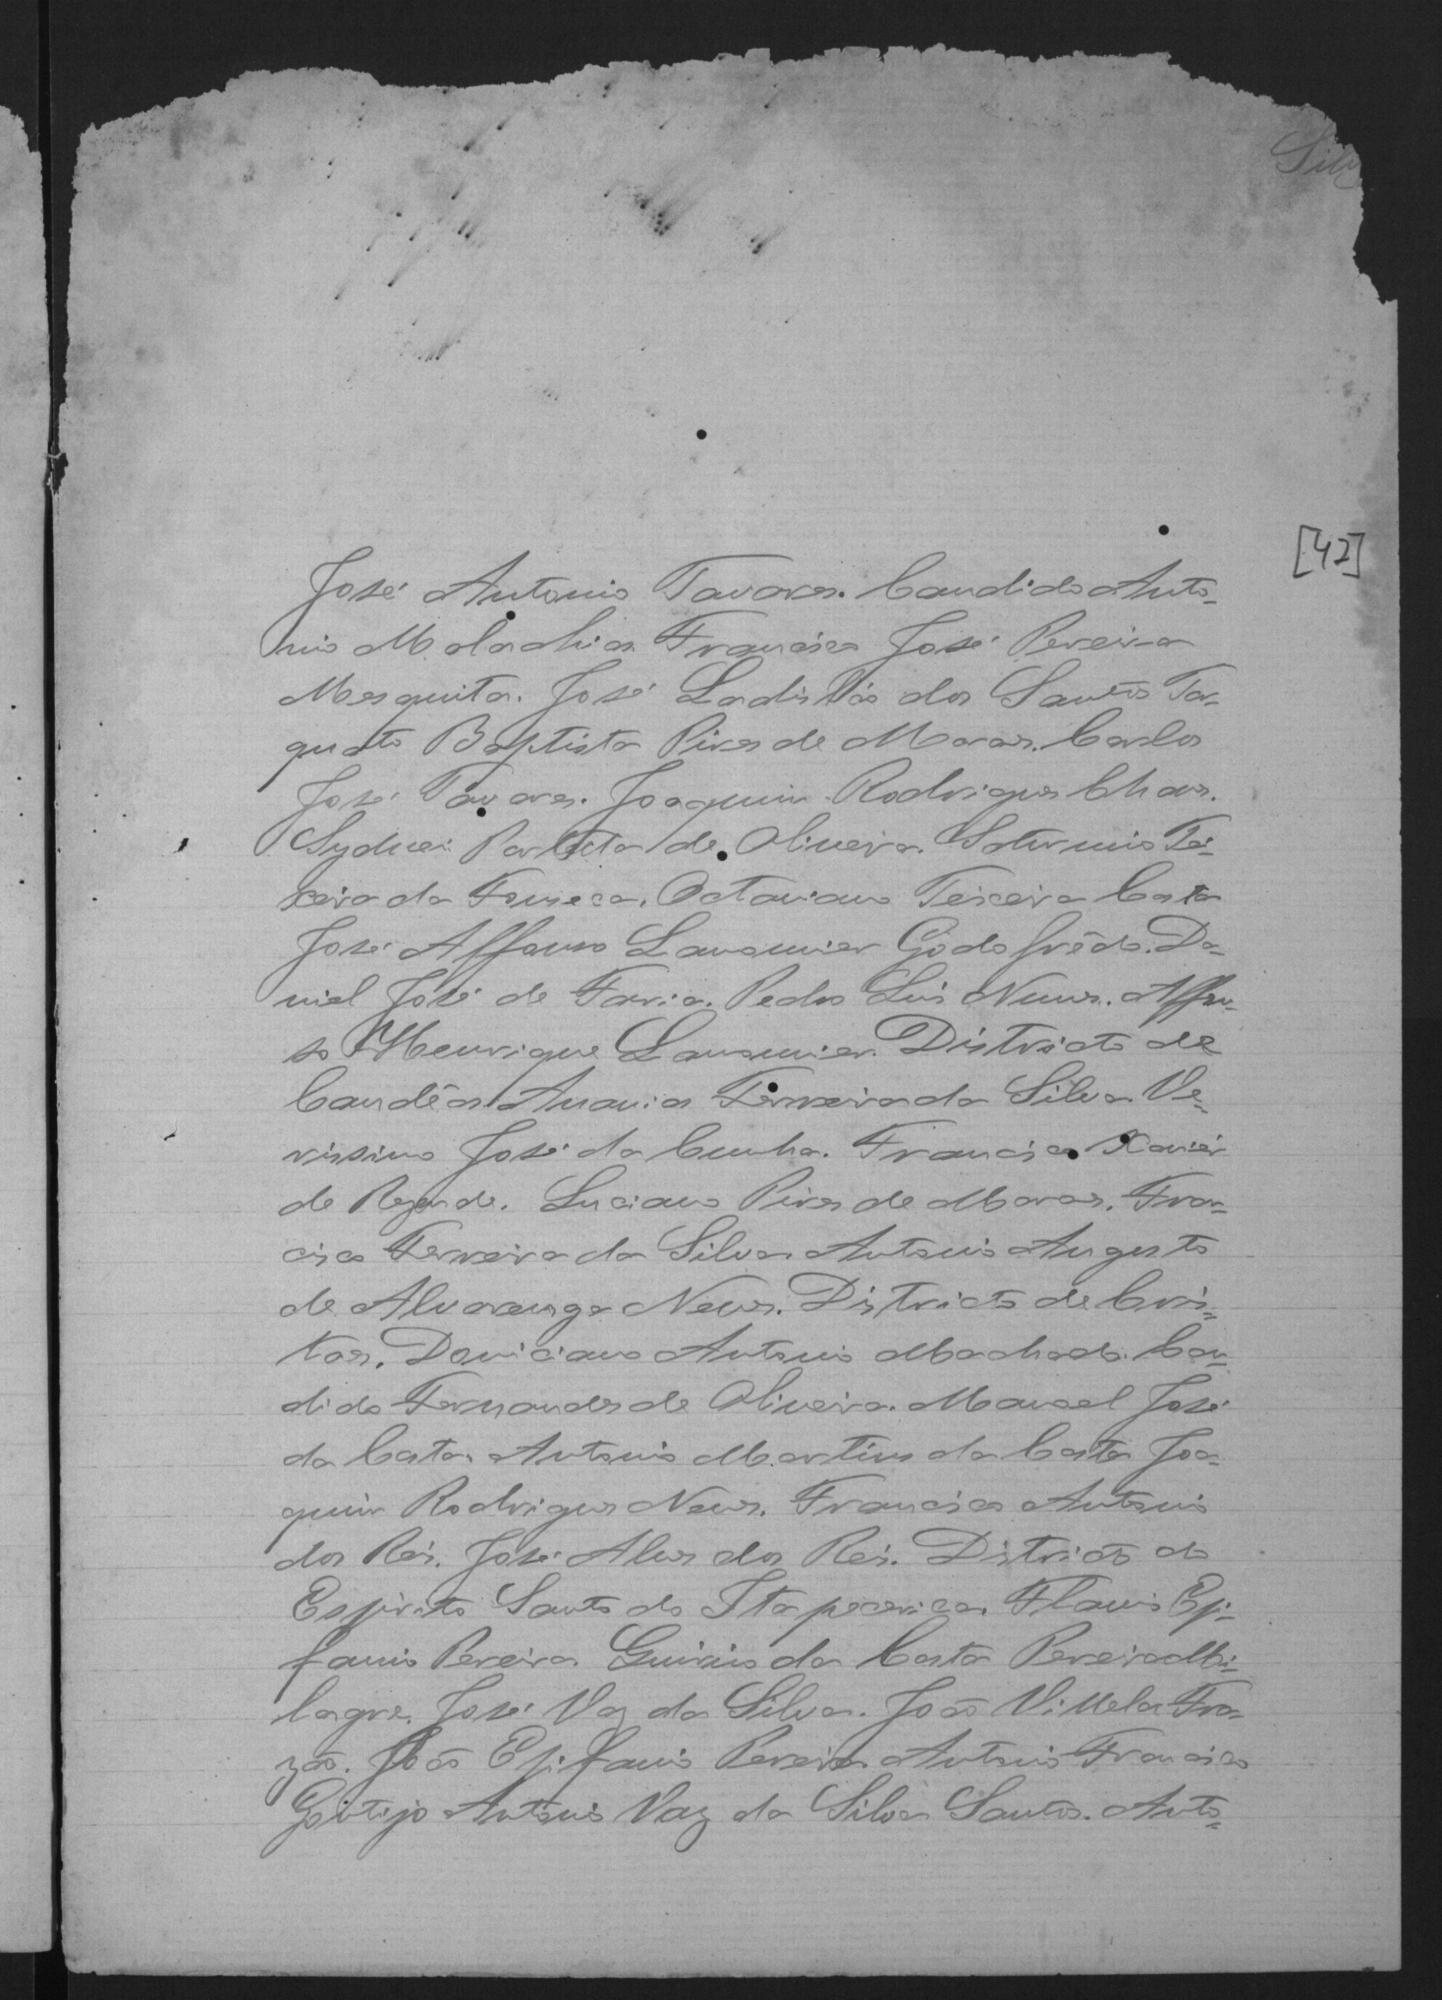 Silv
[42]
José Antonio Tavares. Candido Anto-
nio Malachias Francisco José Pereira
Mesquita. José Ladisláo dos Santos Tor-
quato Baptista Pires de Moraes. Carlos
José Tavares. Joaquim Rodrigues Chaves.
Sydnei Parleta de Oliveira. Saturnino Tei-
xeira da Fonseca. Octaviano Teixeira Costa
José Affonso Lamounier Godofrêdo. Da-
niel José de Faria. Pedro Luis Nunes. Affon-
so Henrique Lamounier. Districto de
Candêas Ananias Ferreira da Silva. Ve-
rissimo José da Cunha. Francisco Xavier
de Rezende. Luciano Pires de Moraes. Fran-
cisco Ferreira da Silva. Antonio Augusto
de Alvarenga Neves. Districto de Cris-
taes. Domiciano Antonio Machado. Can-
dido Fernandes de Oliveira. Manoel José
da Costa. Antonio Martins da Costa Joa-
quim Rodrigues Neves. Francisco Antonio
dos Reis. José Alves dos Reis. Districto do
Espirito Santo do Itapecerica. Flavio Epi-
fanio Pereira. Quirino da Costa Pereira Mi-
lagre. José Vaz da Silva. João Villela Fra-
zão. João Epifanio Pereira. Antonio Francisco
Goitijo Antonio Vaz da Silva Santos. Anto-